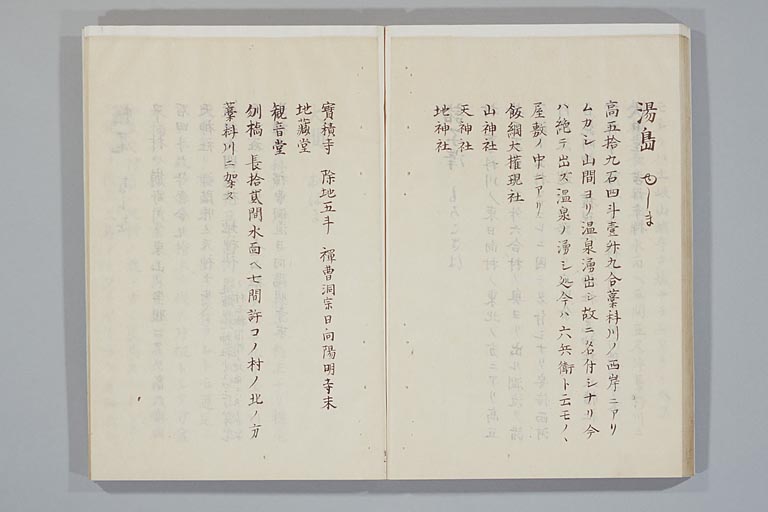 湯島 ゆしま
高五拾九石四斗壹舛九合藁科川ノ西岸ニアリ
ムカシ山間ヨリ温泉湧出シ故ニ名付シナリ今
ハ絶テ出ズ温泉ノ湧シ処今ハ六兵衛ト云モノヽ
屋敷ノ中ニアリ
飯綱大權現社
山神社
天神社
地神社
寶積寺 除地五斗 禪曹洞宗日向陽明寺末
地藏堂
観音堂
刎橋 長拾貳間水面ヘ七間許コノ村ノ北ノ方
藁科川ニ架ス